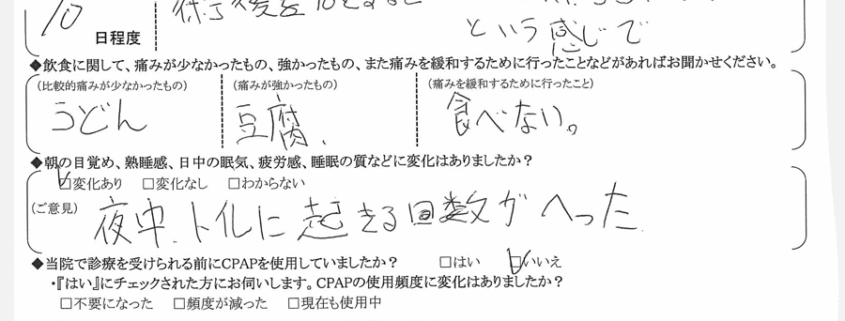 10
日程度
という感じで
◆飲食に関して、痛みが少なかったもの、強かったもの、また痛みを緩和するために行ったことなどがあればお聞かせください。
(比較的痛みが少なかったもの) (痛みが強かったもの) (痛みを緩和するために行ったこと)
うどん 豆腐、 食べない。
◆朝の目覚め、熟睡感、日中の眠気、疲労感、睡眠の質などに変化はありましたか?
☑変化あり □変化なし □わからない
(ご意見) 夜中、トイレに起きる回数がへった
◆当院で診療を受けられる前にCPAPを使用していましたか? □はい ☑いいえ
・『はい』にチェックされた方にお伺いします。CPAPの使用頻度に変化はありましたか?
□不要になった □頻度が減った □現在も使用中